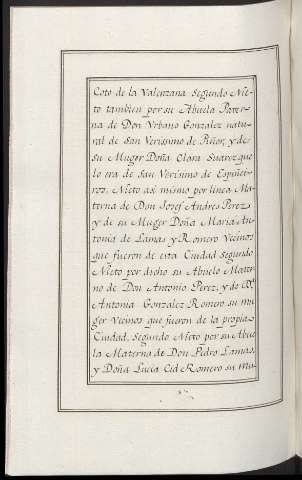 Coto de la Valenzana Segundo Nie-
to tambien por su Abuela Pater-
na de Don Vrbano Gonzalez natu-
ral de San Verissimo de Piñor, y de
su Muger Doña Clara Suarez que
lo era de San Verisimo de Espiñei-
ros, Nieto asi mismo por linea Ma-
terna de Don Josef Andres Perez,
y de su Muger Doña Maria An-
tonia de Lamas y Romero Vecinos
que fueron de esta Ciudad segundo
Nieto por dicho su Abuelo Mater-
no de Don Antonio Perez, y de Dª
Antonia Gonzalez Romero su mu
ger Vecinos que fueron de la propia
Ciudad, Segundo Nieto por su Abue
la Materna de Don Pedro Lamas,
y Doña Lucia Cid Romero su Mu-